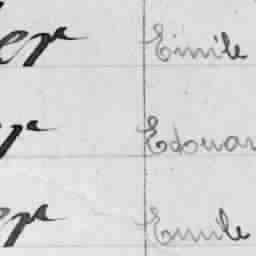 er Emile
r Edouar
er Emile